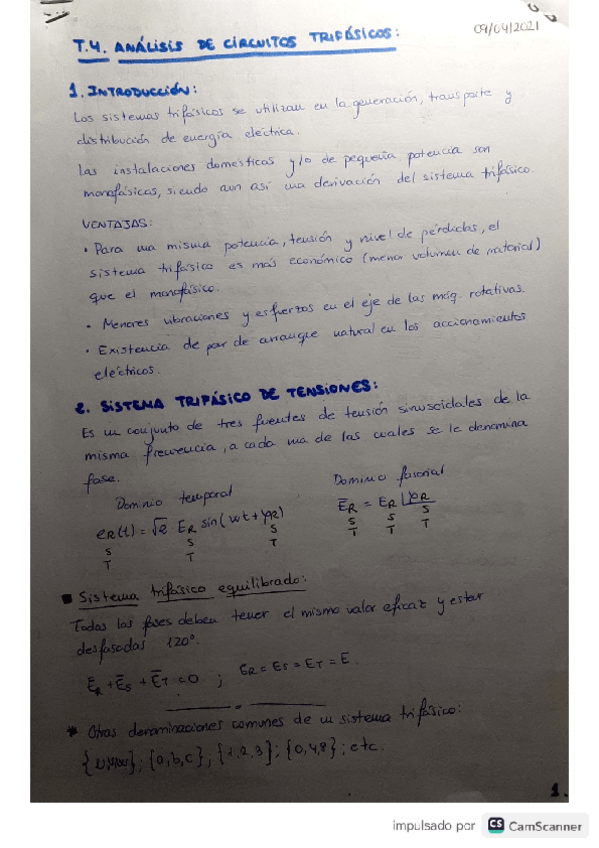 09/04/2021
T.4. ANÁLISIS DE CIRCUITOS TRIFÁSICOS:
1. INTRODUCCIÓN:
Los sistemas trifásicos se utilizan en la generación, transporte y
distribución de energía eléctrica.
Las instalaciones domésticas y/o de pequeña potencia son
monofásicas, siendo aun así una derivación del sistema trifásico.
VENTAJAS:
• Para una misma potencia, tensión y nivel de pérdidas, el
sistema trifásico es más económico (menor volumen de material)
que el monofásico.
• Menores vibraciones y esfuerzos en el eje de las máq. rotativas.
• Existencia de par de arranque natural en los accionamientos
eléctricos.
2. SISTEMA TRIFÁSICO DE TENSIONES:
Es un conjunto de tres fuentes de tensión sinusoidales de la
misma frecuencia, a cada una de las cuales se le denomina
fase.
Dominio temporal Dominio fasorial
eR(t) = √2 ER sin(wt + φR) ĒR = ER |φR
S S S S S S
T T T T T T
■ Sistema trifásico equilibrado:
Todas las fases deben tener el mismo valor eficaz y estar
desfasadas 120°.
ĒR + ĒS + ĒT = 0 ; ER = ES = ET = E.
* Otras denominaciones comunes de un sistema trifásico:
{a,b,c}; {1,2,3}; {0,4,8}; etc.
1.
impulsado por CS CamScanner